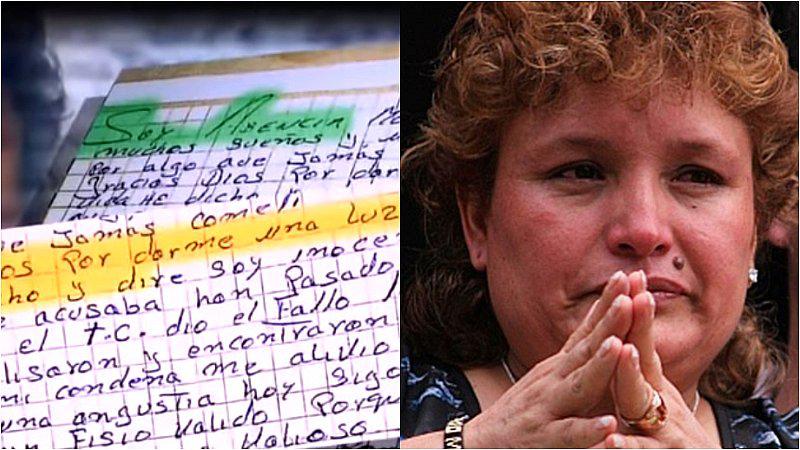 Soy Asencia
muchos sueños y
por algo que jamas
Gracias Dios por dar
vida he dicho
e jamas cometi
os por darme una Luz
ho y dire soy inoce
e acusaba han Pasado
el T.C. dio el Fallo
lisaron y encontraron
mi condena me alivio
una angustia hoy sigo
un Fisio valido Porqu
valioso